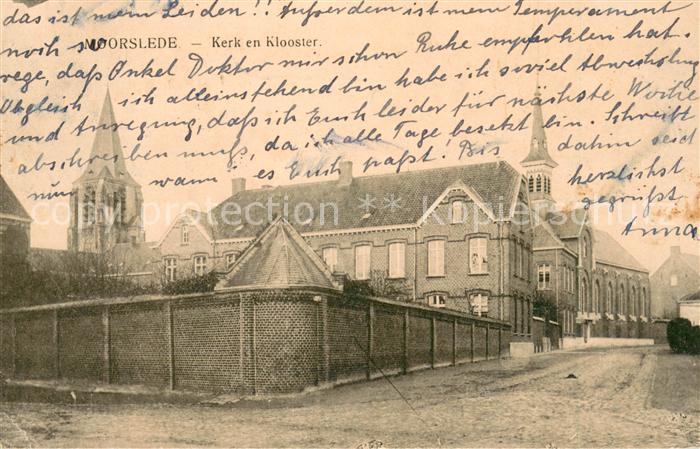 das ist mein Leiden!! Außerdem ist mein Temperament
noch so
MOORSLEDE. — Kerk en Klooster.
rege, daß Onkel Doktor mir schon Ruhe empfohlen hat.
Obgleich ich alleinstehend bin habe ich soviel Abwechslung
und Anregung, daß ich Euch leider für nächste Woche
abschreiben muß, da ich alle Tage besetzt bin. Schreibt
nun wann es Euch paßt! Bis dahin seid
herzlichst
gegrüßt
Anna
copyright kopierschutz
copyright kopierschutz